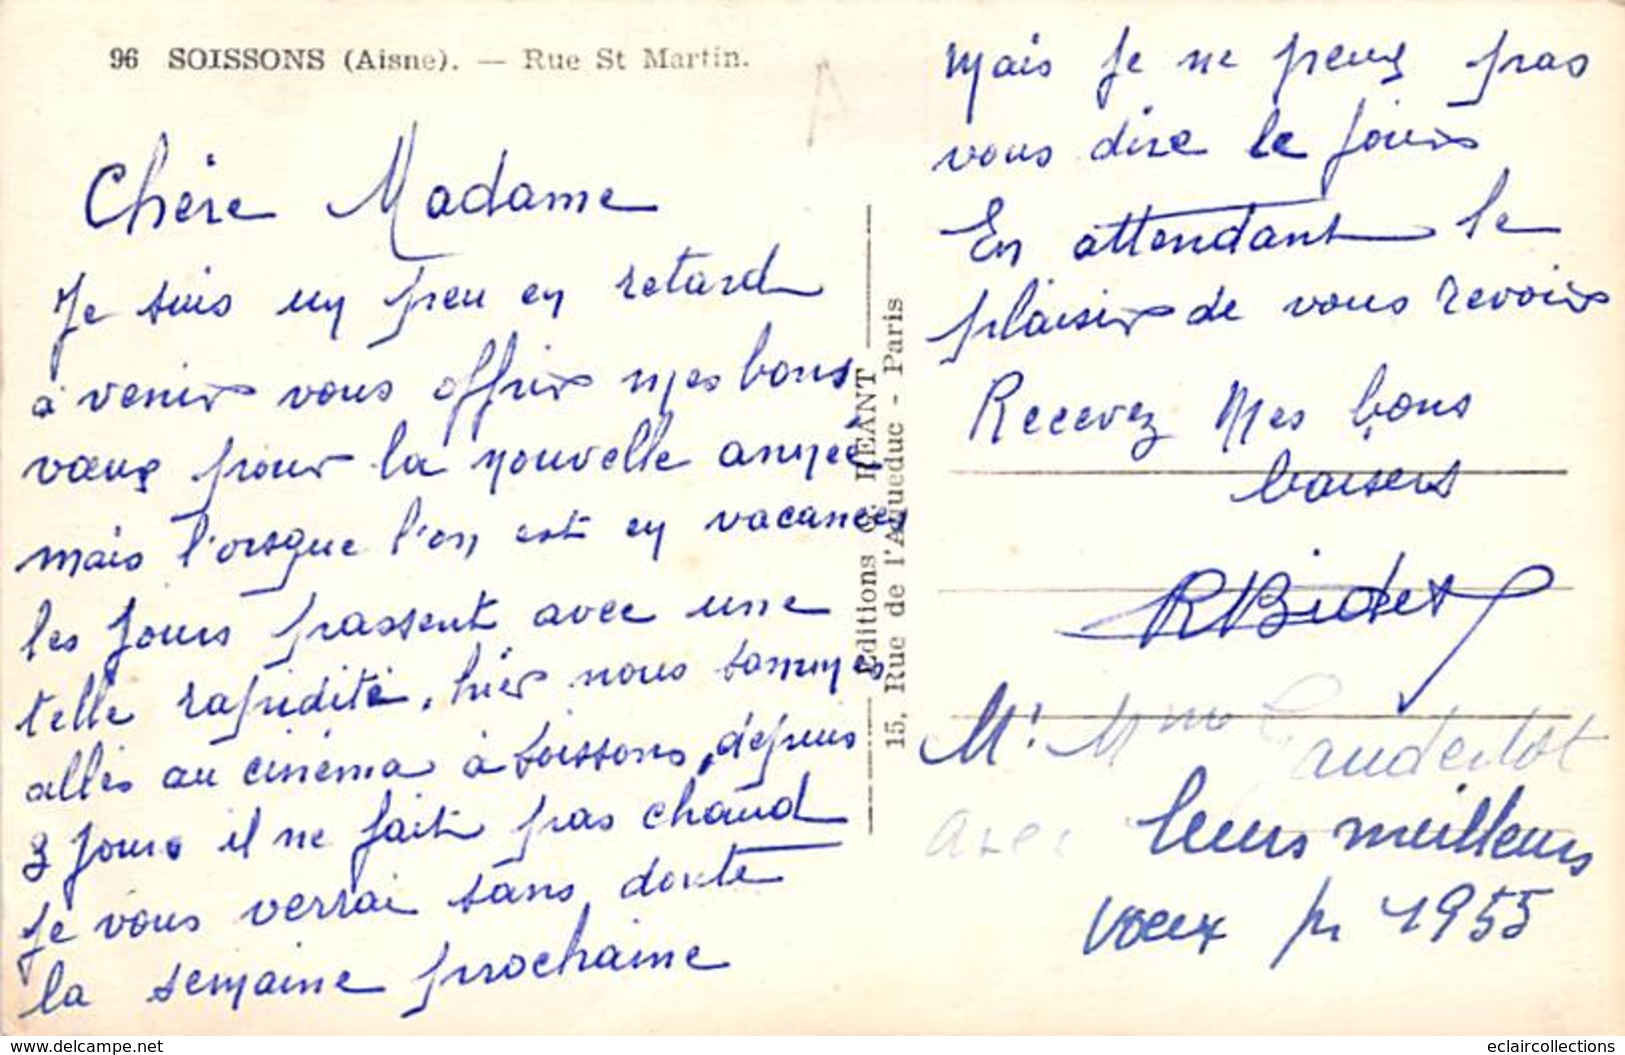 96 SOISSONS (Aisne). — Rue St Martin.
Chère Madame
Je suis un peu en retard
à venir vous offrir mes bons
vœux pour la nouvelle année
mais l'orsque l'on est en vacances
les jours passent avec une
telle rapidité, hier nous sommes
allés au cinéma à Soissons, depuis
3 jours il ne fait pas chaud
Je vous verrai sans doute
la semaine prochaine
Editions G. RÉANT
15, Rue de l'Aqueduc - Paris
mais je ne peux pas
vous dire le jour
En attendant le
plaisir de vous revoir
Recevez mes bons
baisers
R Bidet
Mr Mme
avec leurs meilleurs
vœux pr 1955
www.delcampe.net
eclaircollections